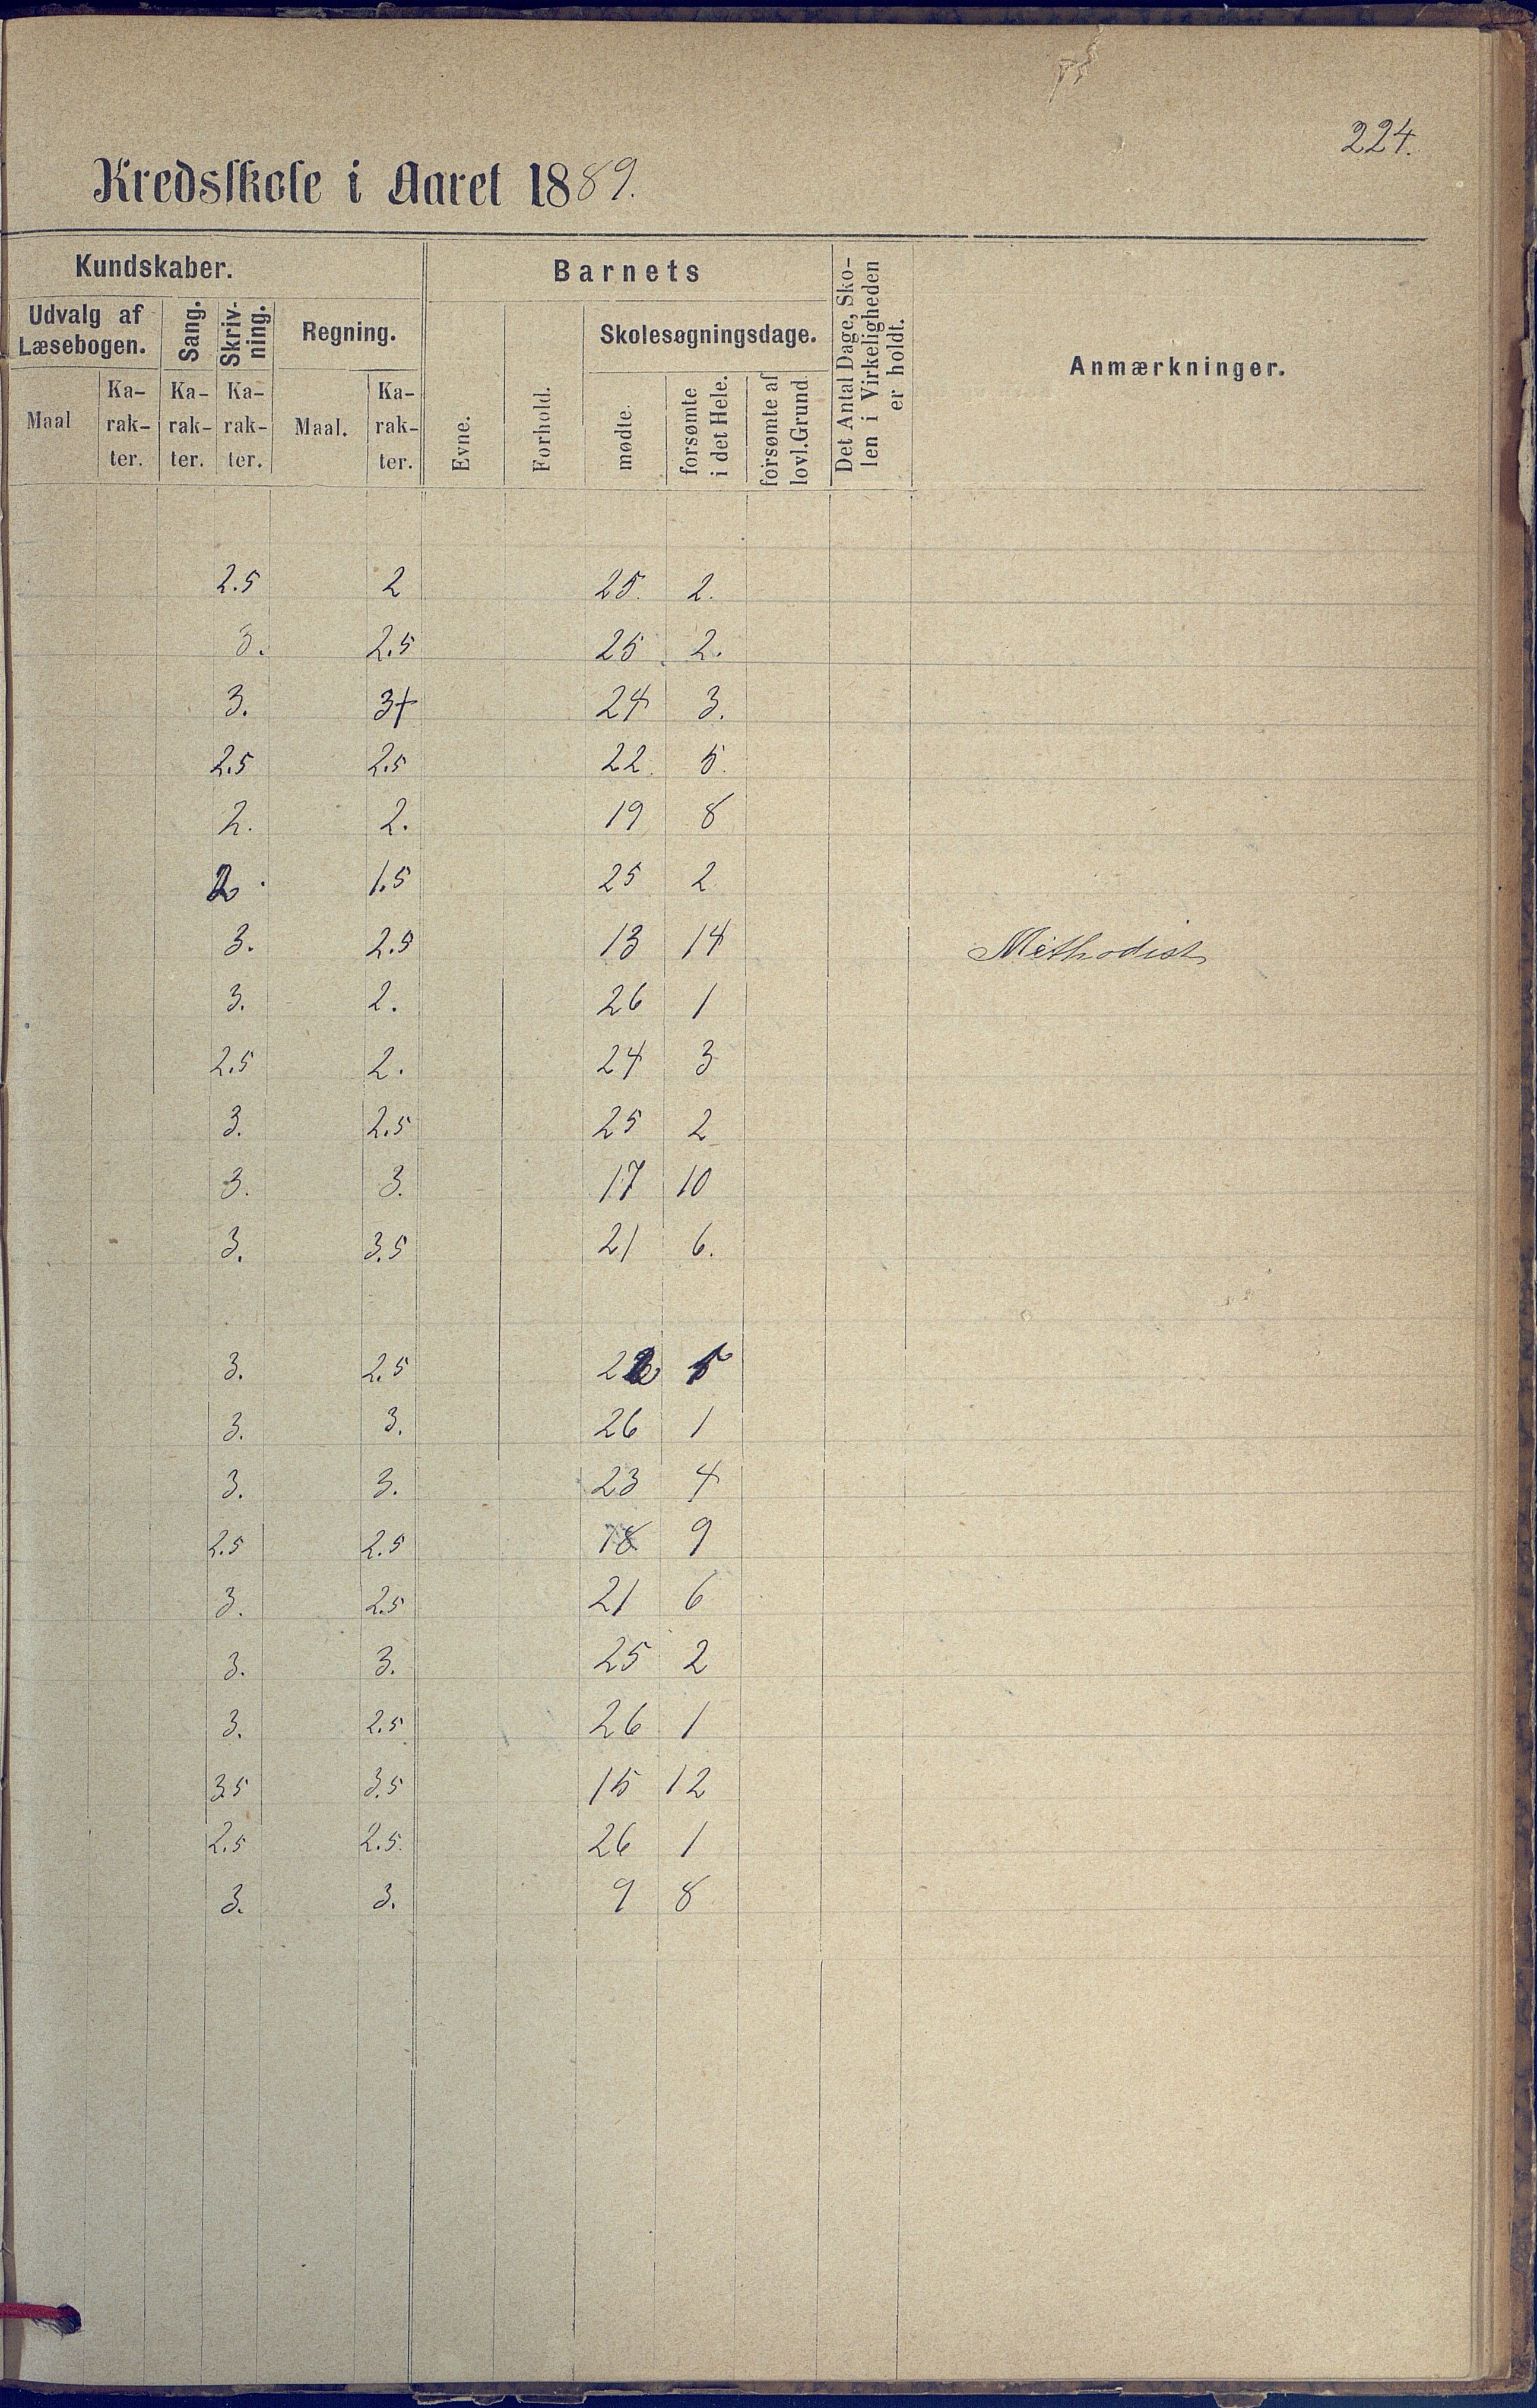 224.
Kredsskole i Aaret 1889.
Kundskaber.
Barnets
Det Antal Dage, Sko-
len i Virkeligheden
er holdt.
Anmærkninger.
Udvalg af
Læsebogen.
Sang.
Skriv-
ning.
Regning.
Evne.
Forhold.
Skolesøgningsdage.
Maal
Ka-
rak-
ter.
Ka-
rak-
ter.
Ka-
rak-
ter.
Maal.
Ka-
rak-
ter.
mødte.
forsømte
i det Hele.
forsømte af
lovl. Grund.
2.5 2 25. 2.
3. 2.5 25 2.
3. 3+ 24 3.
2.5 2.5 22. 5.
2. 2. 19 8
2. 1.5 25 2
3. 2.5 13 14 Methodist
3. 2. 26 1
2.5 2. 24 3
3. 2.5 25 2
3. 3. 17 10
3. 3.5 21 6.
3. 2.5 22 5
3. 3. 26 1
3. 3. 23 4
2.5 2.5 18 9
3. 2.5 21 6
3. 3. 25 2
3. 2.5 26 1
3.5 3.5 15 12
2.5 2.5 26 1
3. 3. 9 8